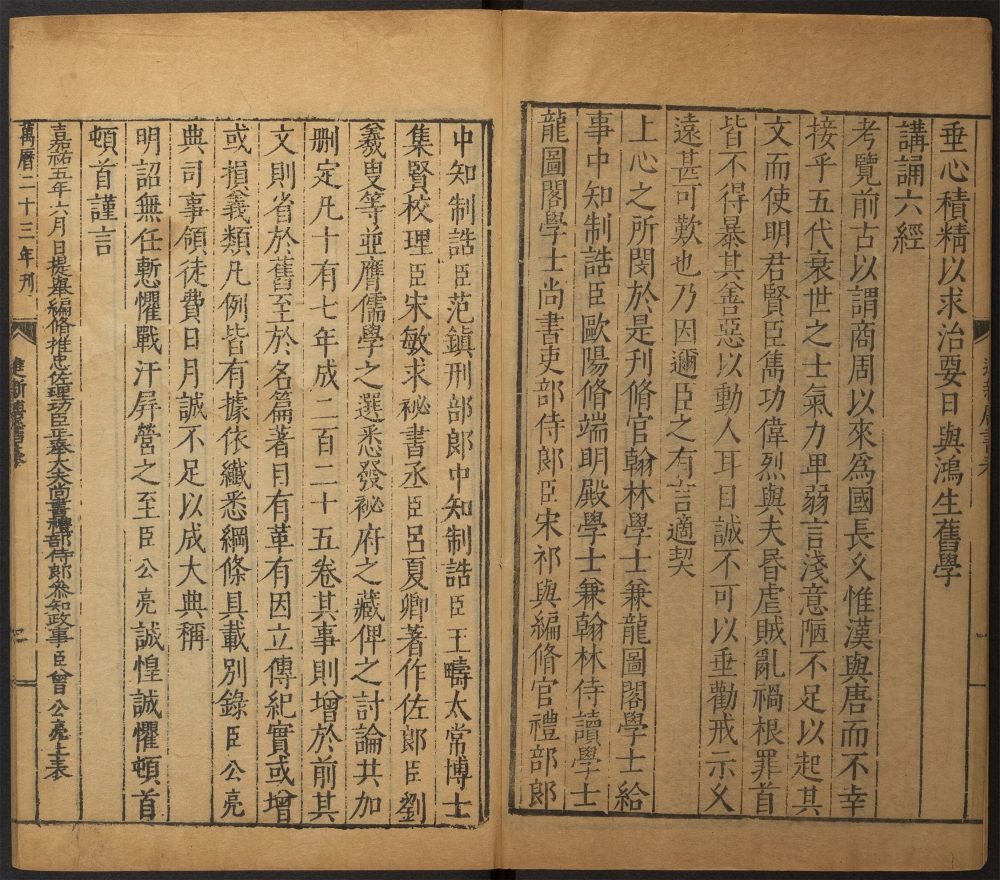 垂心積精以求治要日與鴻生舊學
講誦六經
考覽前古以謂商周以來爲國長久惟漢與唐而不幸
接乎五代衰世之士氣力卑弱言淺意陋不足以起其
文而使明君賢臣雋功偉烈與夫昬虐賊亂禍根罪首
皆不得暴其善惡以動人耳目誠不可以垂勸戒示久
遠甚可歎也乃因邇臣之有言適契
上心之所閔於是刋脩官翰林學士兼龍圖閣學士給
事中知制誥臣歐陽脩端明殿學士兼翰林侍讀學士
龍圖閣學士尚書吏部侍郎臣宋祁與編脩官禮部郎
中知制誥臣范鎮刑部郎中知制誥臣王疇太常博士
集賢校理臣宋敏求祕書丞臣呂夏卿著作佐郎臣劉
羲叟等並膺儒學之選悉發祕府之藏俾之討論共加
刪定凡十有七年成二百二十五卷其事則增於前其
文則省於舊至於名篇著目有革有因立傳紀實或增
或損義類凡例皆有據依纖悉綱條具載別錄臣公亮
典司事領徒費日月誠不足以成大典稱
明詔無任慙懼戰汗屛營之至臣公亮誠惶誠懼頓首
頓首謹言
嘉祐五年六月日提舉編脩推忠佐理功臣正奉大夫尚書禮部侍郎參知政事臣曾公亮上表
萬曆二十三年刋